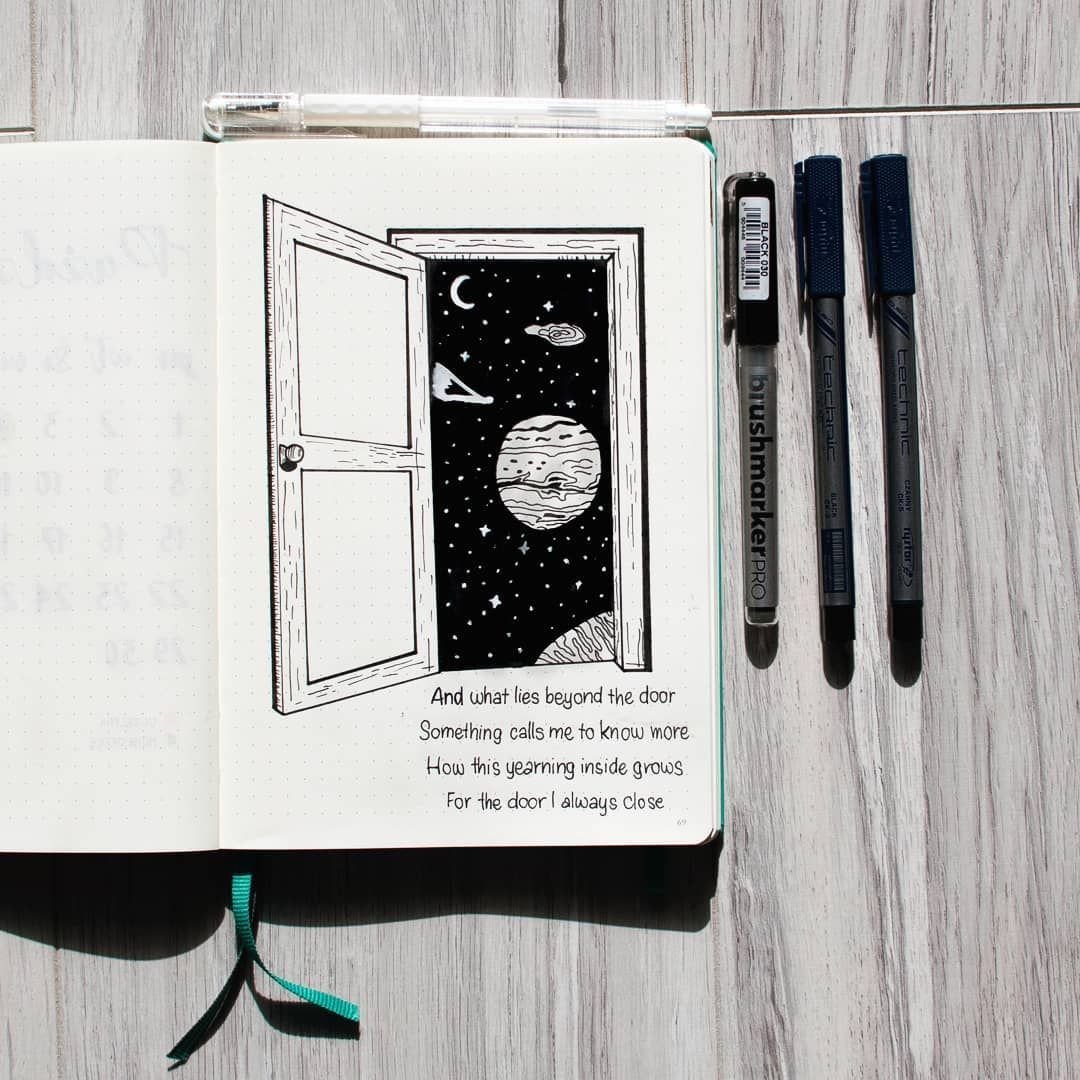 And what lies beyond the door
Something calls me to know more
How this yearning inside grows
For the door I always close
69
BLACK 030
brushmarker PRO
technic
BLACK
technic
CZARNY